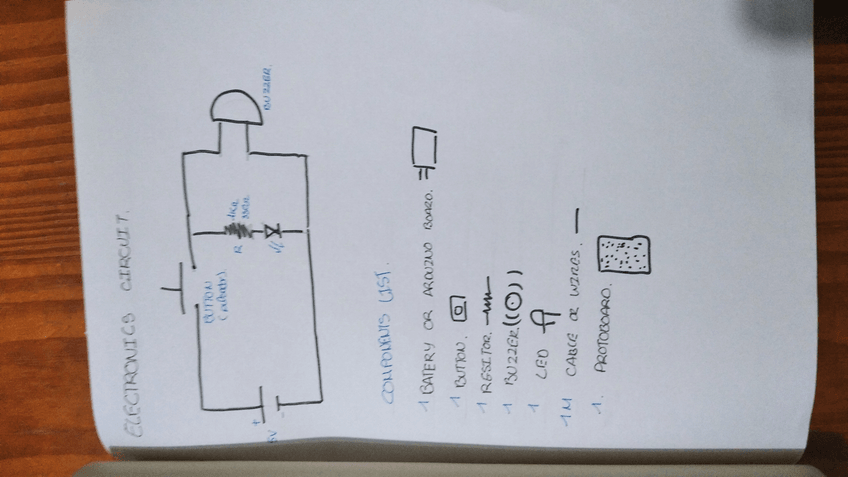 ELECTRONICS CIRCUIT.
BUZZER.
R
330R.
BUTTON
+
-
5V
COMPONENTS LIST.
1 BATERY OR ARDUINO BOARD.
1 BUTTON.
1 RESITOR.
1 BUZZER.
1 LED
1M CABLE OR WIRES.
1. PROTOBOARD.